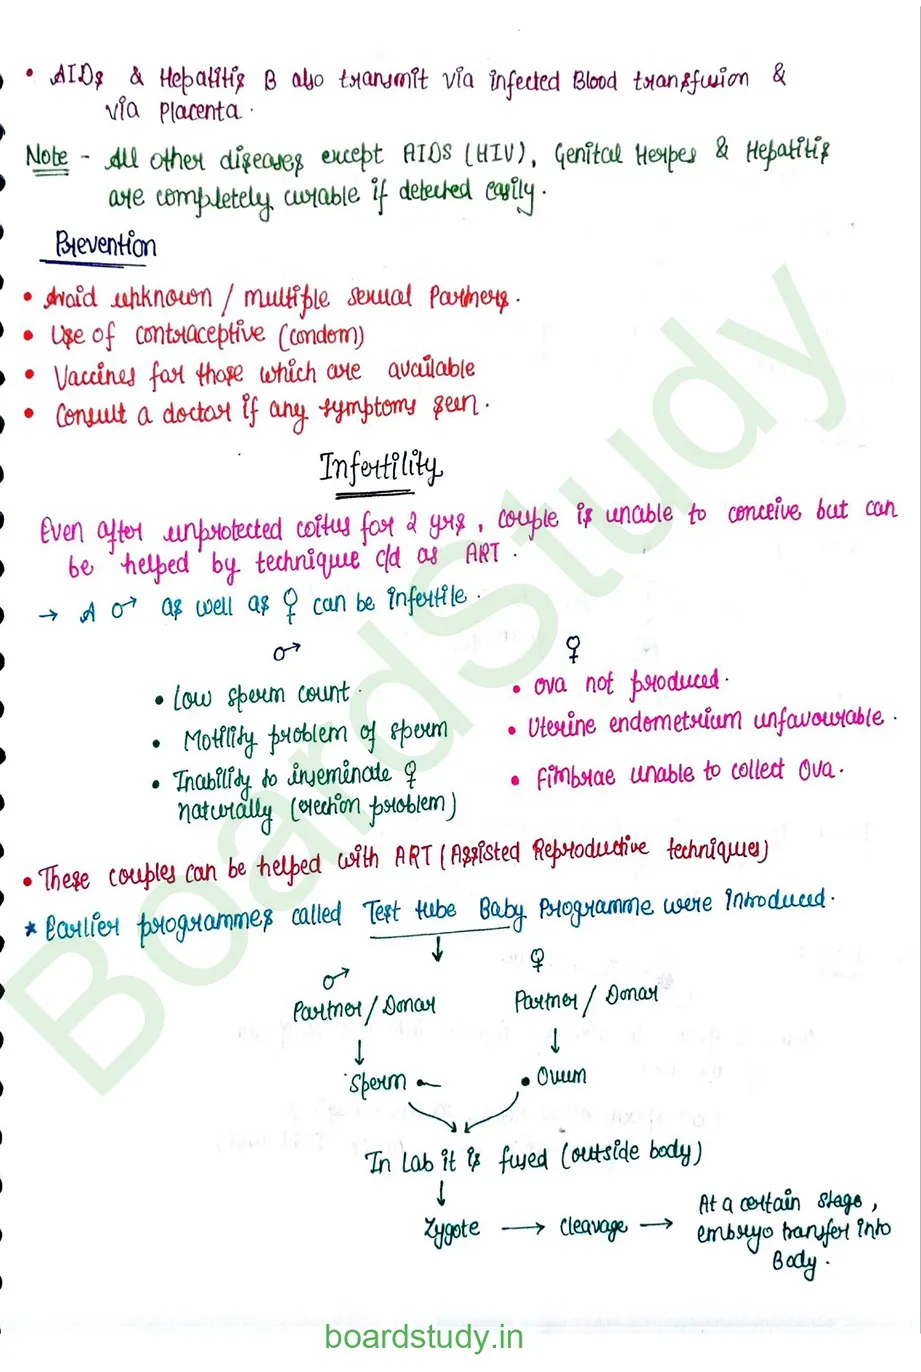 • AIDs & Hepatitis B also transmit via infected Blood transfusion &
via Placenta.
Note - All other diseases except AIDS (HIV), Genital Herpes & Hepatitis
are completely curable if detected easily.
Prevention
• Avoid unknown / multiple sexual Partners.
• Use of contraceptive (condom)
• Vaccines for those which are available
• Consult a doctor if any symptoms seen.
Infertility
Even after unprotected coitus for 2 yrs, couple is unable to conceive but can
be helped by technique c/d as ART.
→ A ♂ as well as ♀ can be infertile.
♂ ♀
• Low sperm count.
• Motility problem of sperm
• Inability to inseminate ♀
naturally (erection problem)
• Ova not produced.
• Uterine endometrium unfavourable.
• Fimbrae unable to collect Ova.
• These couples can be helped with ART (Assisted Reproductive techniques)
* Earlier programmes called Test tube Baby Programme were introduced.
↓
♂ ♀
Partner / Donar Partner / Donar
↓ ↓
Sperm • Ovum
In Lab it is fused (outside body)
↓
Zygote → Cleavage → At a certain stage,
embryo transfer into
Body.
BoardStudy
boardstudy.in